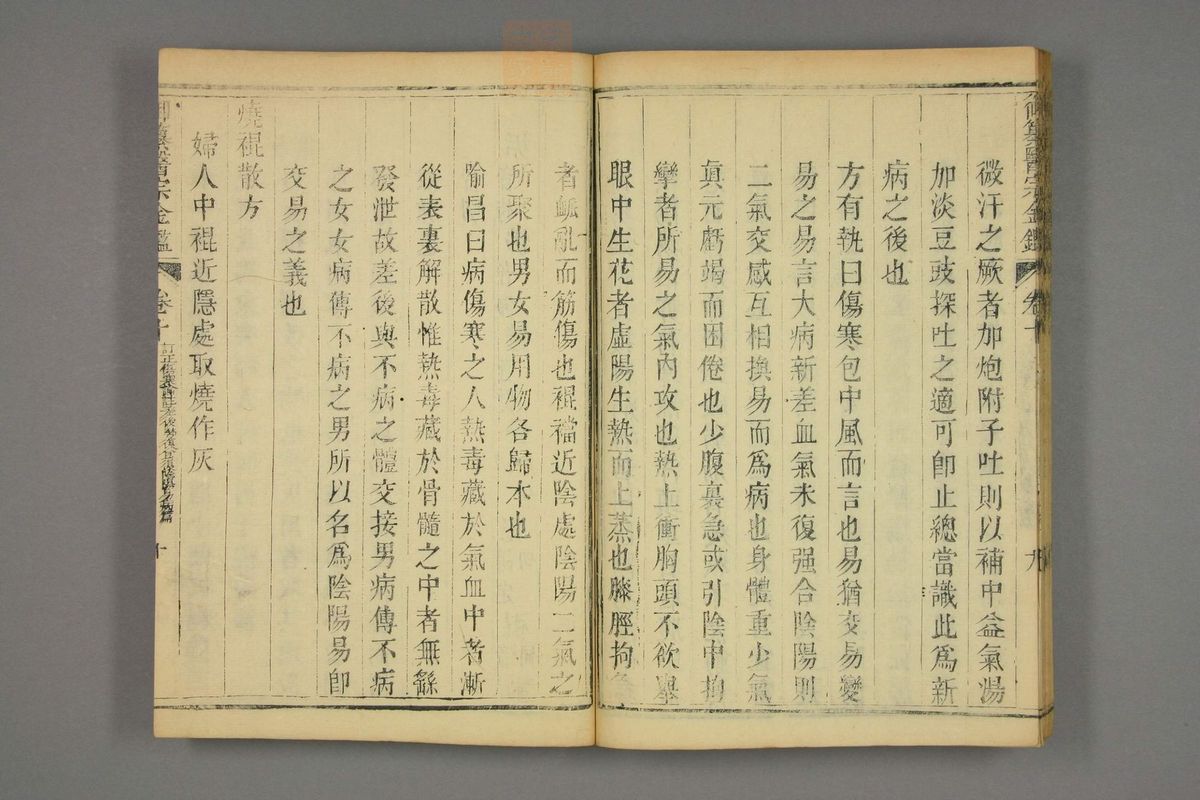 御纂醫宗金鑑 卷十 九
微汗之厥者加炮附子吐則以補中益氣湯
加淡豆豉探吐之適可卽止總當識此爲新
病之後也
方有執曰傷寒包中風而言也易猶交易變
易之易言大病新差血氣未復强合陰陽則
二氣交感互相換易而爲病也身體重少氣
眞元虧竭而困倦也少腹裏急或引陰中拘
攣者所易之氣內攻也熱上衝胸頭不欲舉
眼中生花者虛陽生熱而上蒸也膝脛拘急
者衇亂而筋傷也裩襠近陰處陰陽二氣之
所聚也男女易用物各歸本也
喻昌曰病傷寒之人熱毒藏於氣血中者漸
從表裏解散惟熱毒藏於骨髓之中者無繇
發泄故差後與不病之體交接男病傳不病
之女女病傳不病之男所以名爲陰陽易卽
交易之義也
燒裩散方
婦人中裩近隱處取燒作灰
御纂醫宗金鑑 卷十 十